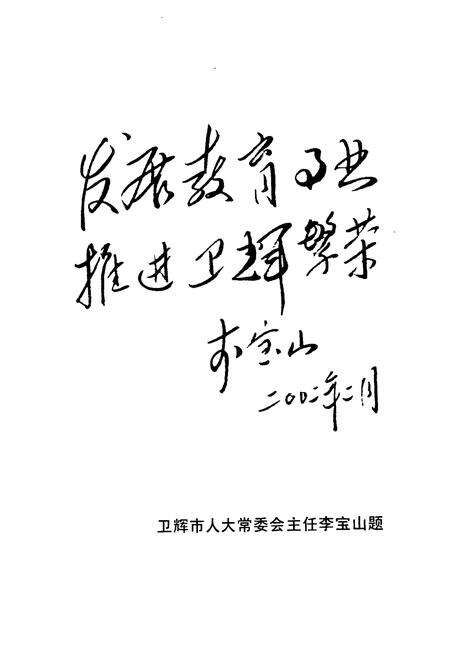 发展教育事业
推进卫辉繁荣
李宝山
二00二年二月
卫辉市人大常委会主任李宝山题